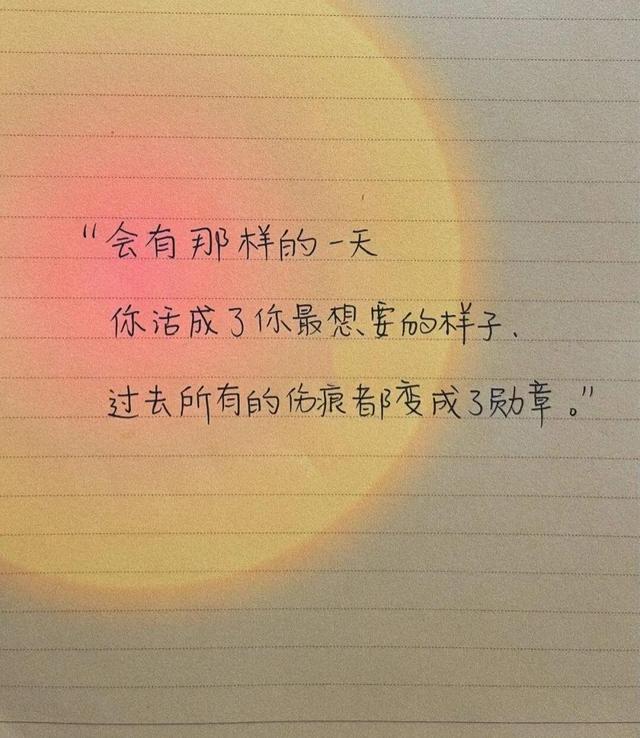 “会有那样的一天
你活成了你最想要的样子.
过去所有的伤痕都变成了勋章。”